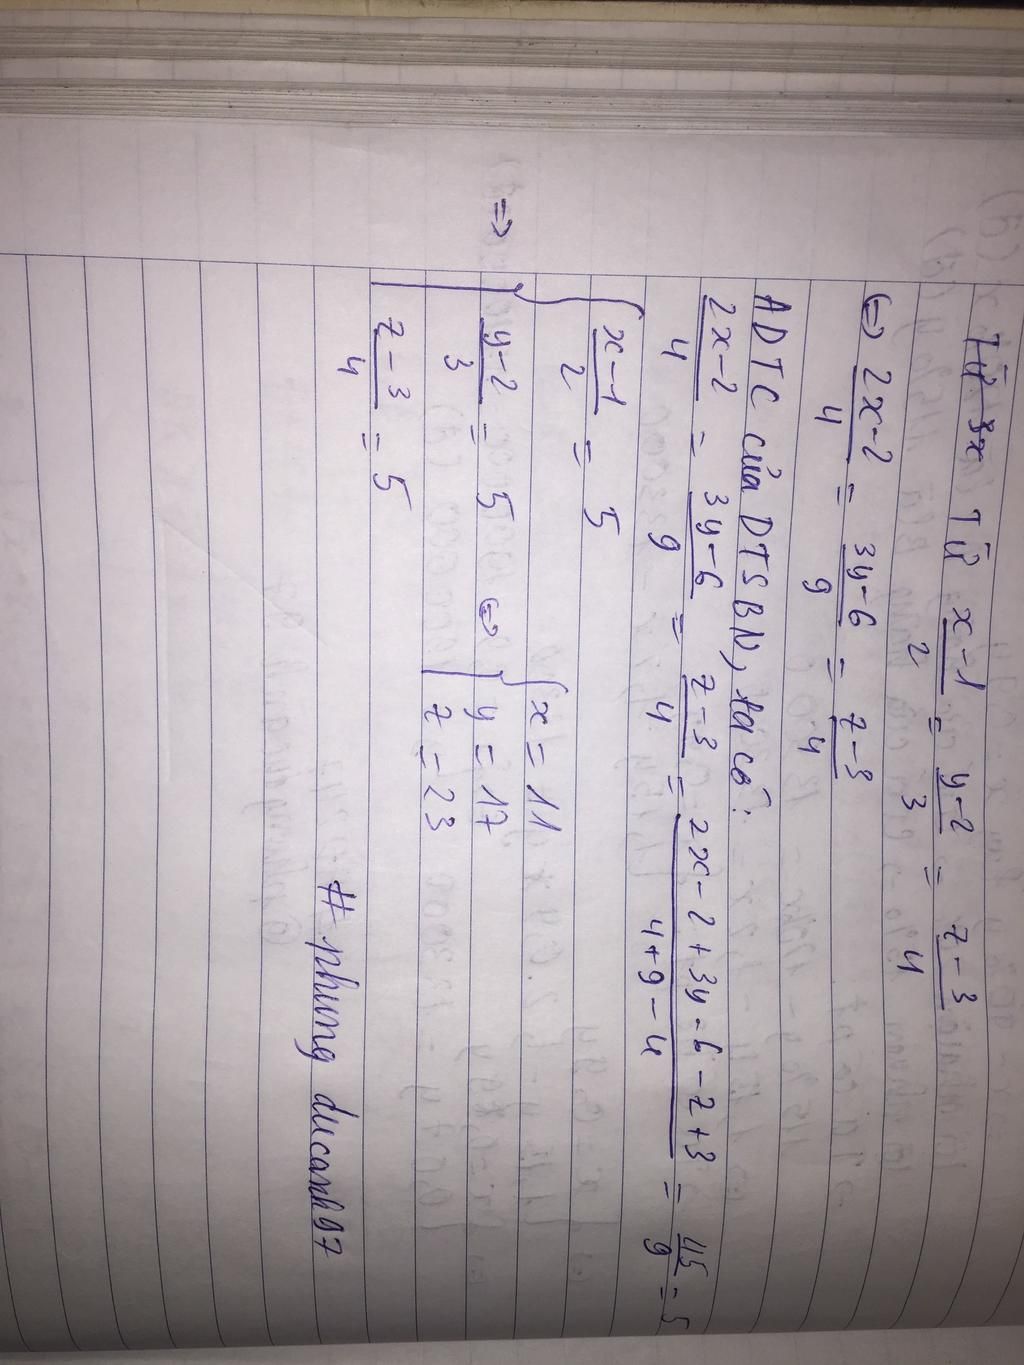 Từ 3x Từ x-1/2 = y-2/3 = z-3/4
<=> 2x-2/4 = 3y-6/9 = z-3/4
ADTC của DTSBN, ta có:
2x-2/4 = 3y-6/9 = z-3/4 = 2x-2+3y-6-z+3/4+9-4 = 45/9 = 5
x-1/2 = 5
=> y-2/3 = 5 <=> { x = 11
y = 17
z-3/4 = 5 z = 23
# phung ducanh97